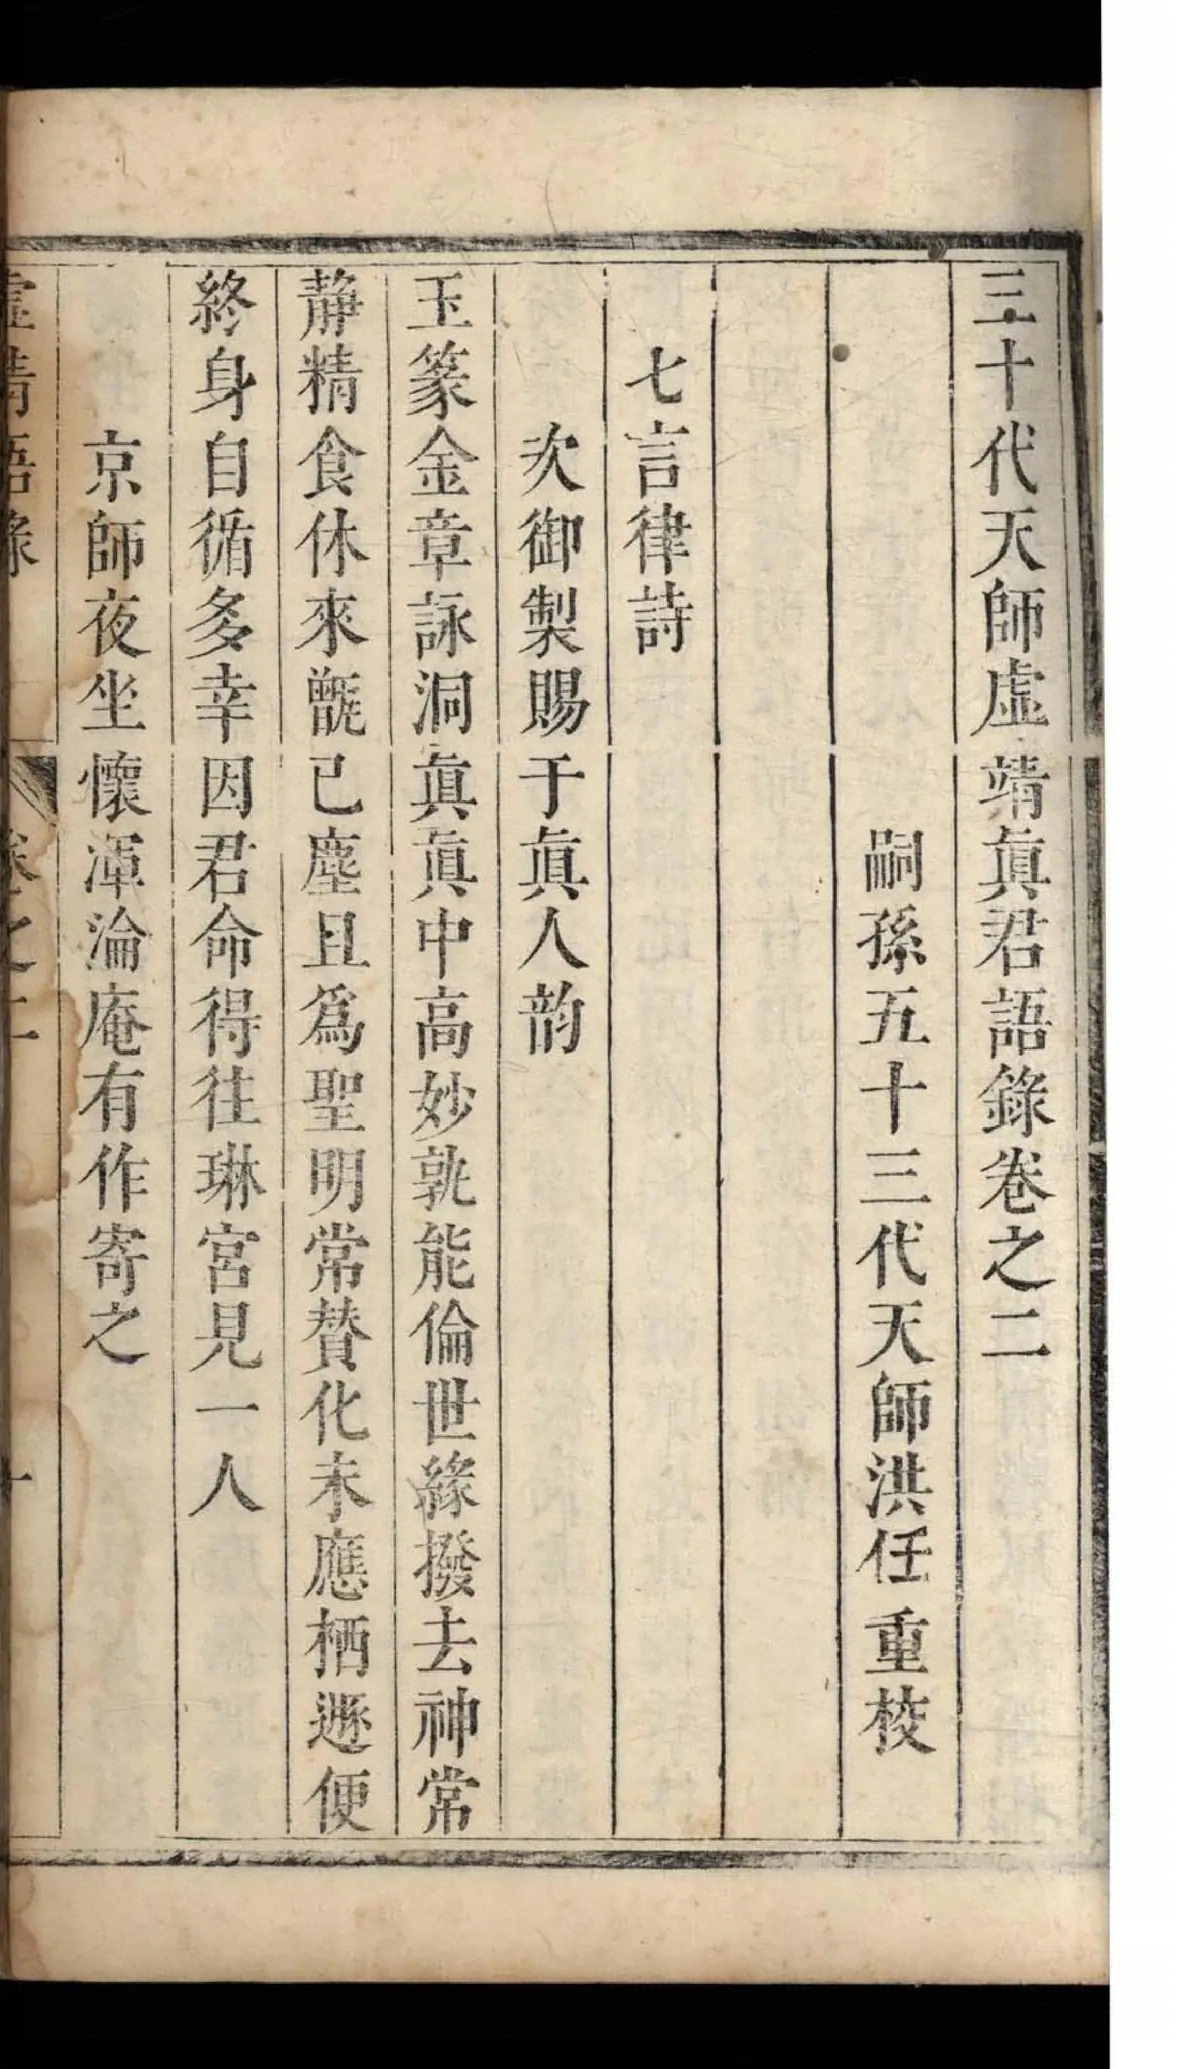 三十代天師虛靖眞君語錄卷之二
嗣孫五十三代天師洪任重校
七言律詩
次御製賜于眞人韵
玉篆金章詠洞眞眞中高妙孰能倫世緣撥去神常
静精食休來甑已塵且爲聖明常賛化未應栖遯便
終身自循多幸因君命得徃琳宮見一人
京師夜坐懷渾淪庵有作寄之
虛靖語錄 卷之二